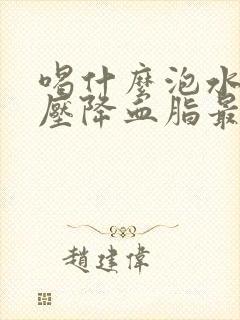 喝什麼泡水
壓降血脂最
趙建偉